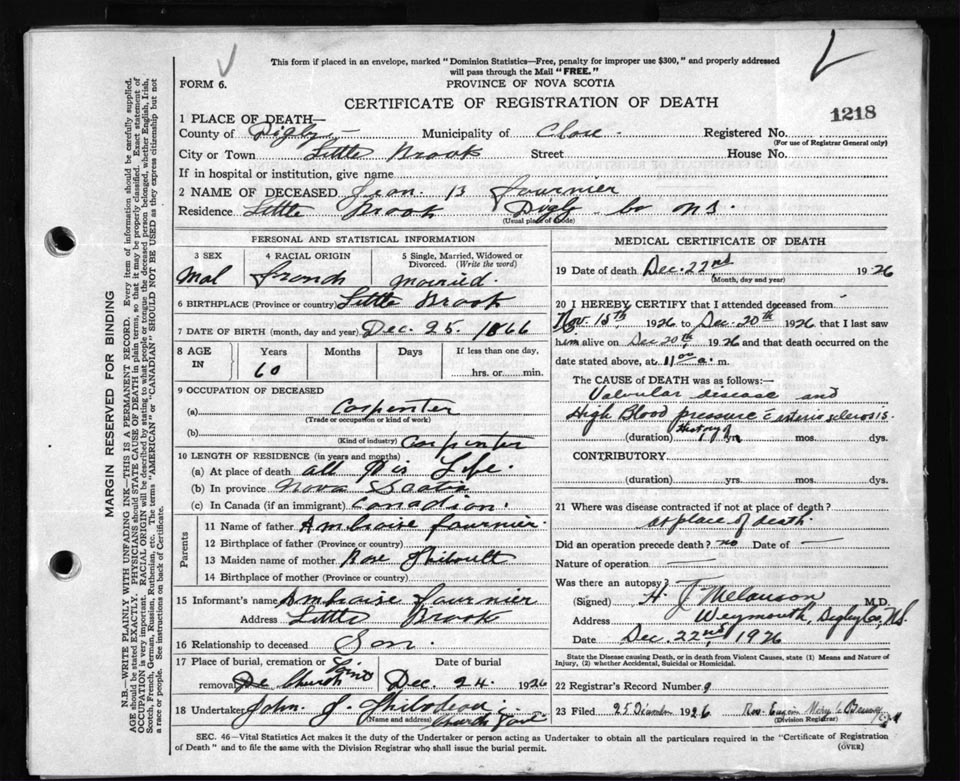 This form if placed in an envelope, marked "Dominion Statistics—Free, penalty for improper use $300," and properly addressed
will pass through the Mail "FREE."
FORM 6.
PROVINCE OF NOVA SCOTIA
CERTIFICATE OF REGISTRATION OF DEATH
1218
1 PLACE OF DEATH—
County of Digby Municipality of Clare Registered No.
(For use of Registrar General only)
City or Town Little Brook Street House No.
If in hospital or institution, give name
2 NAME OF DECEASED Jean B Fournier
Residence Little Brook Digby Co NS.
(Usual place of abode)
PERSONAL AND STATISTICAL INFORMATION
3 SEX 4 RACIAL ORIGIN 5 Single, Married, Widowed or
Divorced. (Write the word)
Mal French Married.
6 BIRTHPLACE (Province or country) Little Brook
7 DATE OF BIRTH (month, day and year) Dec. 25. 1866
8 AGE IN Years Months Days If less than one day,
60 hrs. or min.
9 OCCUPATION OF DECEASED
(a) Carpenter
(Trade or occupation or kind of work)
(b) Carpenter
(Kind of industry)
10 LENGTH OF RESIDENCE (in years and months)
(a) At place of death all His Life.
(b) In province Nova Scotia
(c) In Canada (if an immigrant) Canadian.
Parents
11 Name of father Ambroise Fournier.
12 Birthplace of father (Province or country)
13 Maiden name of mother Rose Thiboult
14 Birthplace of mother (Province or country)
15 Informant's name Ambroise Fournier
Address Little Brook
16 Relationship to deceased Son
17 Place of burial, cremation or Date of burial
removal Church Point Dec. 24. 1926
18 Undertaker John J. Thibodeau
(Name and address) Church Point
MEDICAL CERTIFICATE OF DEATH
19 Date of death Dec. 22nd 1926
(Month, day and year)
20 I HEREBY CERTIFY that I attended deceased from
Nov. 15th, 1926 to Dec. 20th 1926 that I last saw
him alive on Dec 20th 1926 and that death occurred on
date stated above, at 11 00 a. m.
The CAUSE of DEATH was as follows:—
Valvular disease and
High Blood pressure c arterio sclerosis.
(duration) History of yrs. mos. dys.
CONTRIBUTORY
(duration) yrs. mos. dys.
21 Where was disease contracted if not at place of death?
at place of death.
Did an operation precede death? no Date of —
Nature of operation —
Was there an autopsy?
(Signed) H J Melanson M.D.
Address Weymouth, Digby Co, N.S.
Date Dec. 22nd, 1926
State the Disease causing Death, or in death from Violent Causes, state (1) Means and Nature of
Injury, (2) whether Accidental, Suicidal or Homicidal.
22 Registrar's Record Number 9
23 Filed 25 Décembre 1926 Rev.
(Division Registrar)
SEC. 46—Vital Statistics Act makes it the duty of the Undertaker or person acting as Undertaker to obtain all the particulars required in the "Certificate of Registration
of Death" and to file the same with the Division Registrar who shall issue the burial permit.
(OVER)
MARGIN RESERVED FOR BINDING
N.B.—WRITE PLAINLY WITH UNFADING INK—THIS IS A PERMANENT RECORD. Every item of information should be carefully supplied.
AGE should be stated EXACTLY. PHYSICIANS should STATE CAUSE OF DEATH in plain terms, so that it may be properly classified. Exact statement of
OCCUPATION is very important. RACIAL ORIGIN will be described by stating to what people or tongue the deceased person belonged, whether English, Irish,
Scotch, French, German, Russian, Ruthenian, etc. The terms "AMERICAN" or "CANADIAN" SHOULD NOT BE USED as they express citizenship but not
a race or people. See instructions on back of Certificate.